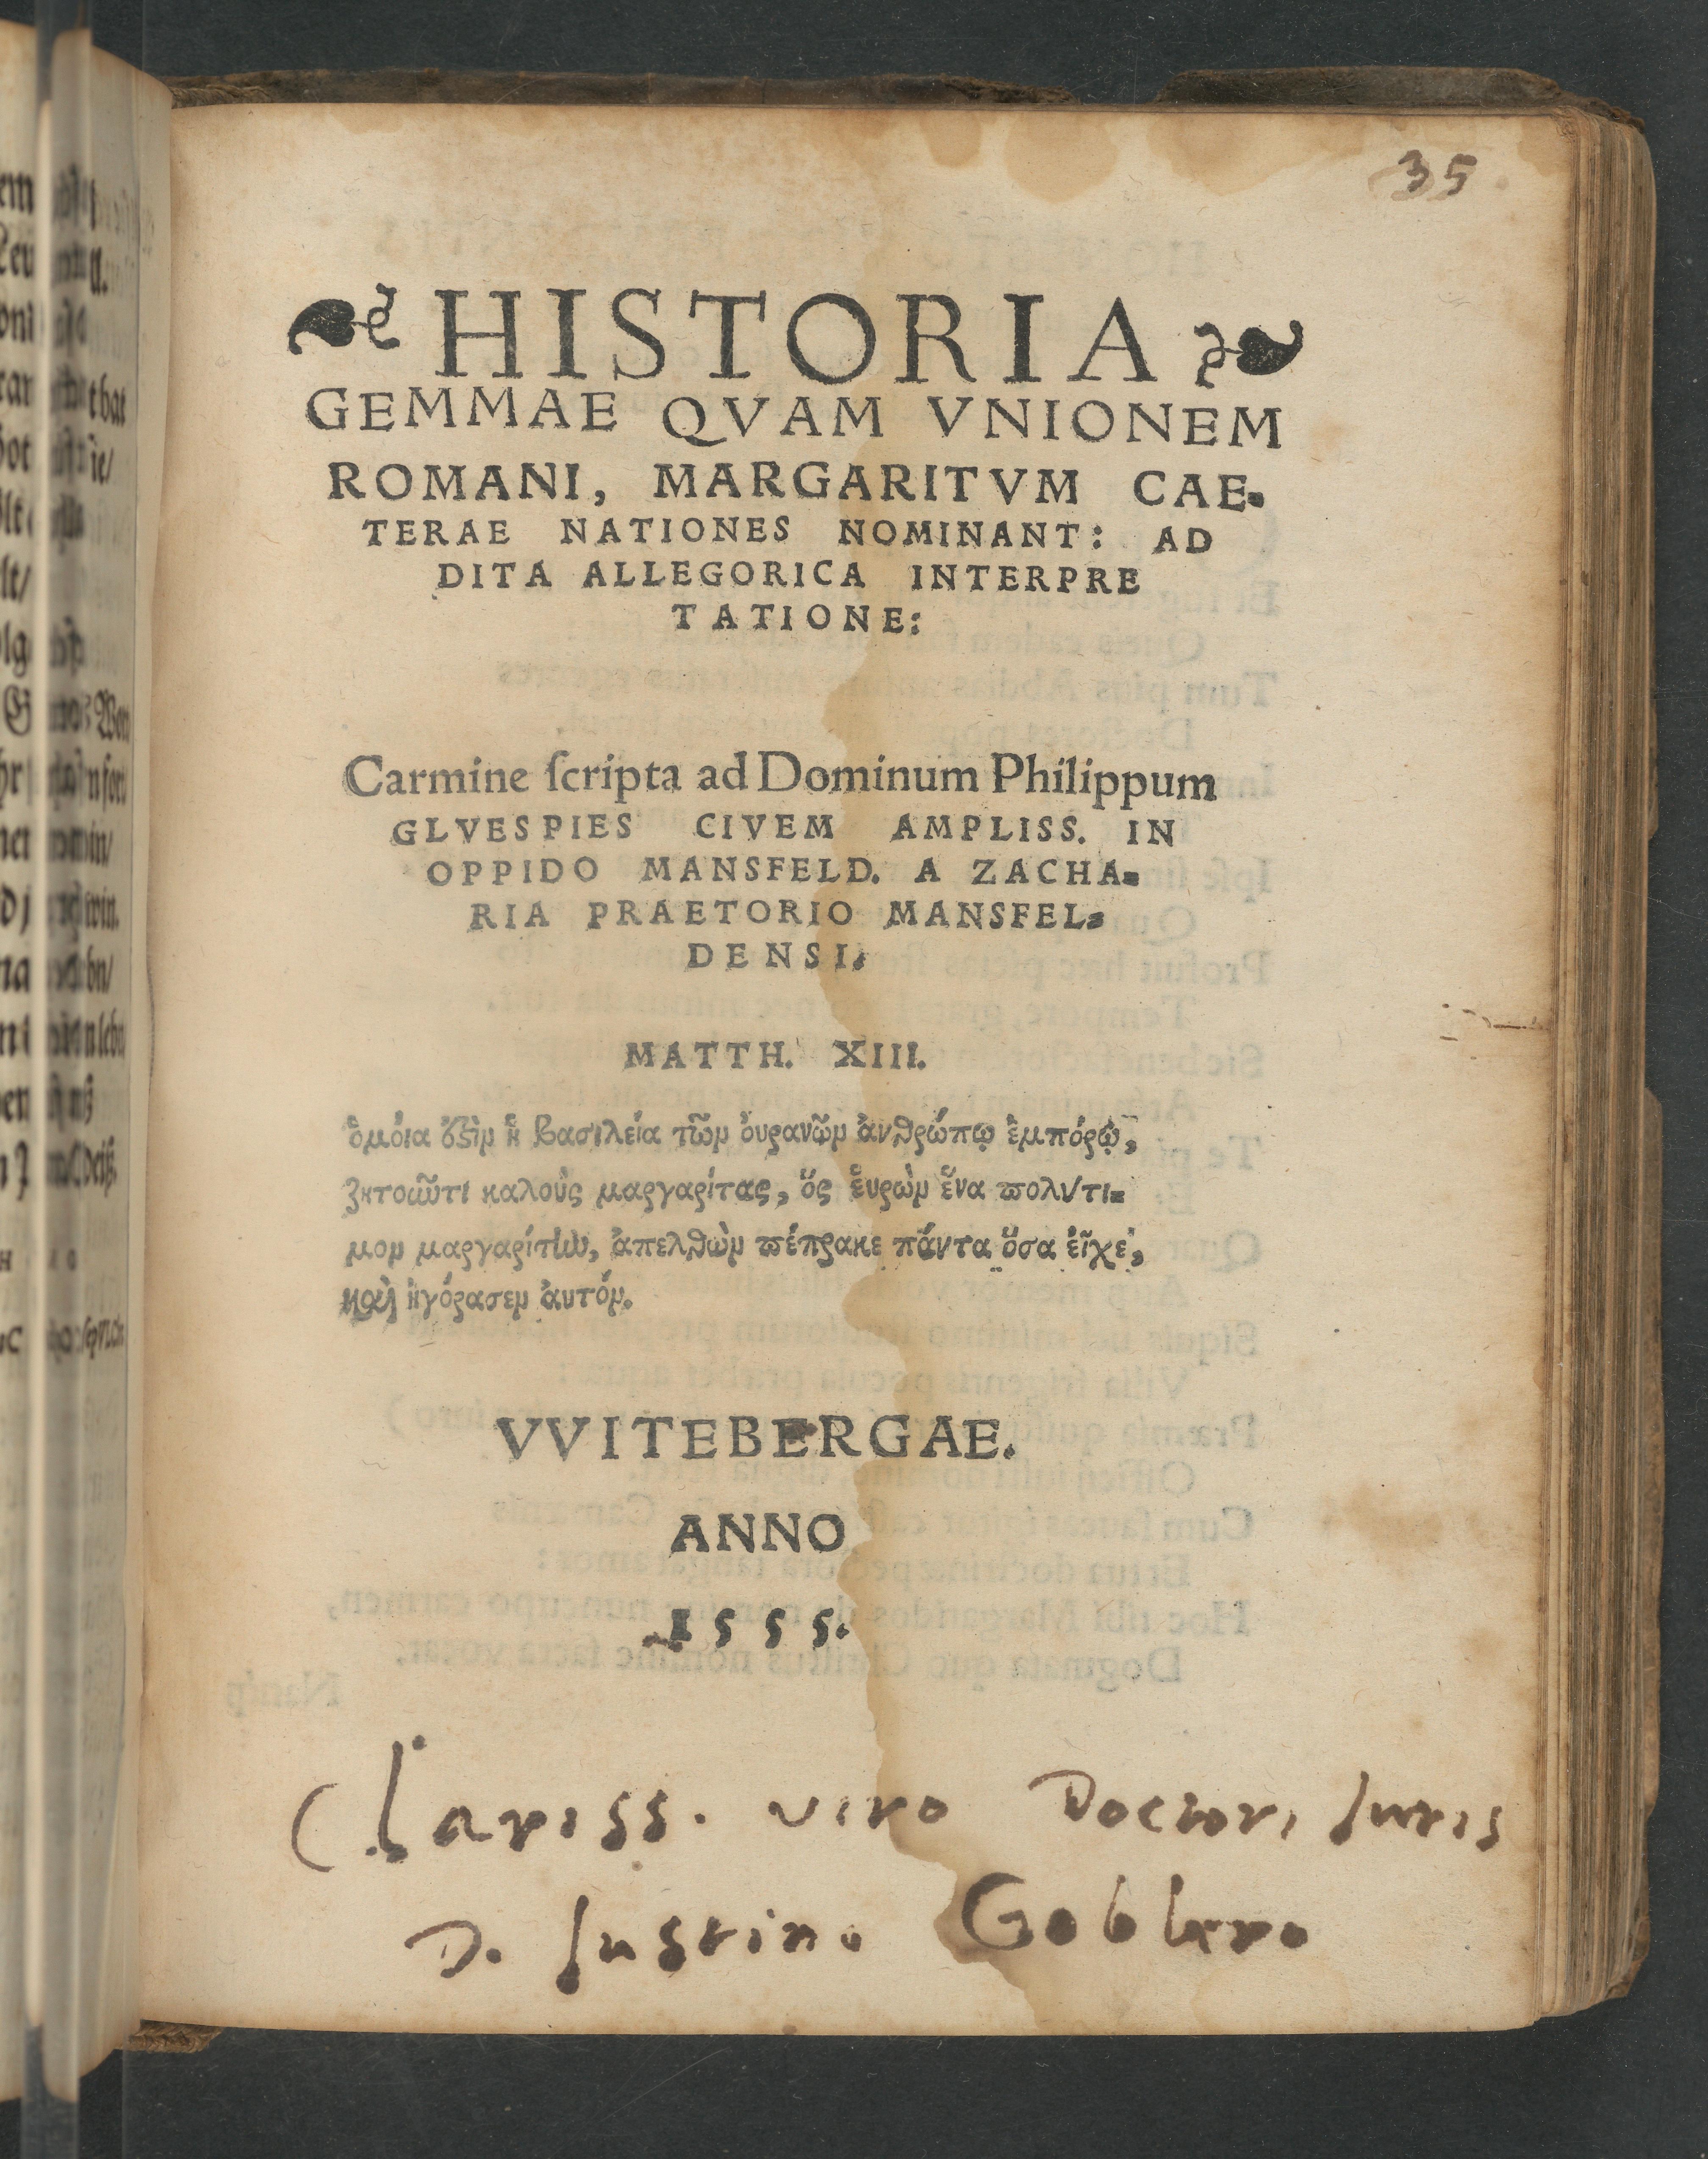 35
HISTORIA
GEMMAE QVAM VNIONEM
ROMANI, MARGARITVM CAE=
TERAE NATIONES NOMINANT: AD
DITA ALLEGORICA INTERPRE
TATIONE:
Carmine ſcripta ad Dominum Philippum
GLVESPIES CIVEM AMPLISS. IN
OPPIDO MANSFELD. A ZACHA=
RIA PRAETORIO MANSFEL=
DENSI.
MATTH. XIII.
ὁμόια ὅξὶν ἡ βασιλεία τῶν ὀυρανῶν ἀνθρώπῳ ἐμπόρῳ,
ζητοῦντι καλοὺς μαργαρίτας, ὅς ἑυρὼν ἕνα πολύτι=
μον μαργαρίτην, ἀπελθὼν πέπρακε πάντα ὅσα ἐῖχε,
καὶ ἠγόρασεν ἀυτόν.
VVITEBERGAE.
ANNO
1555.
Clariss. viro Doctori Iuris
D. Iustino Goblero